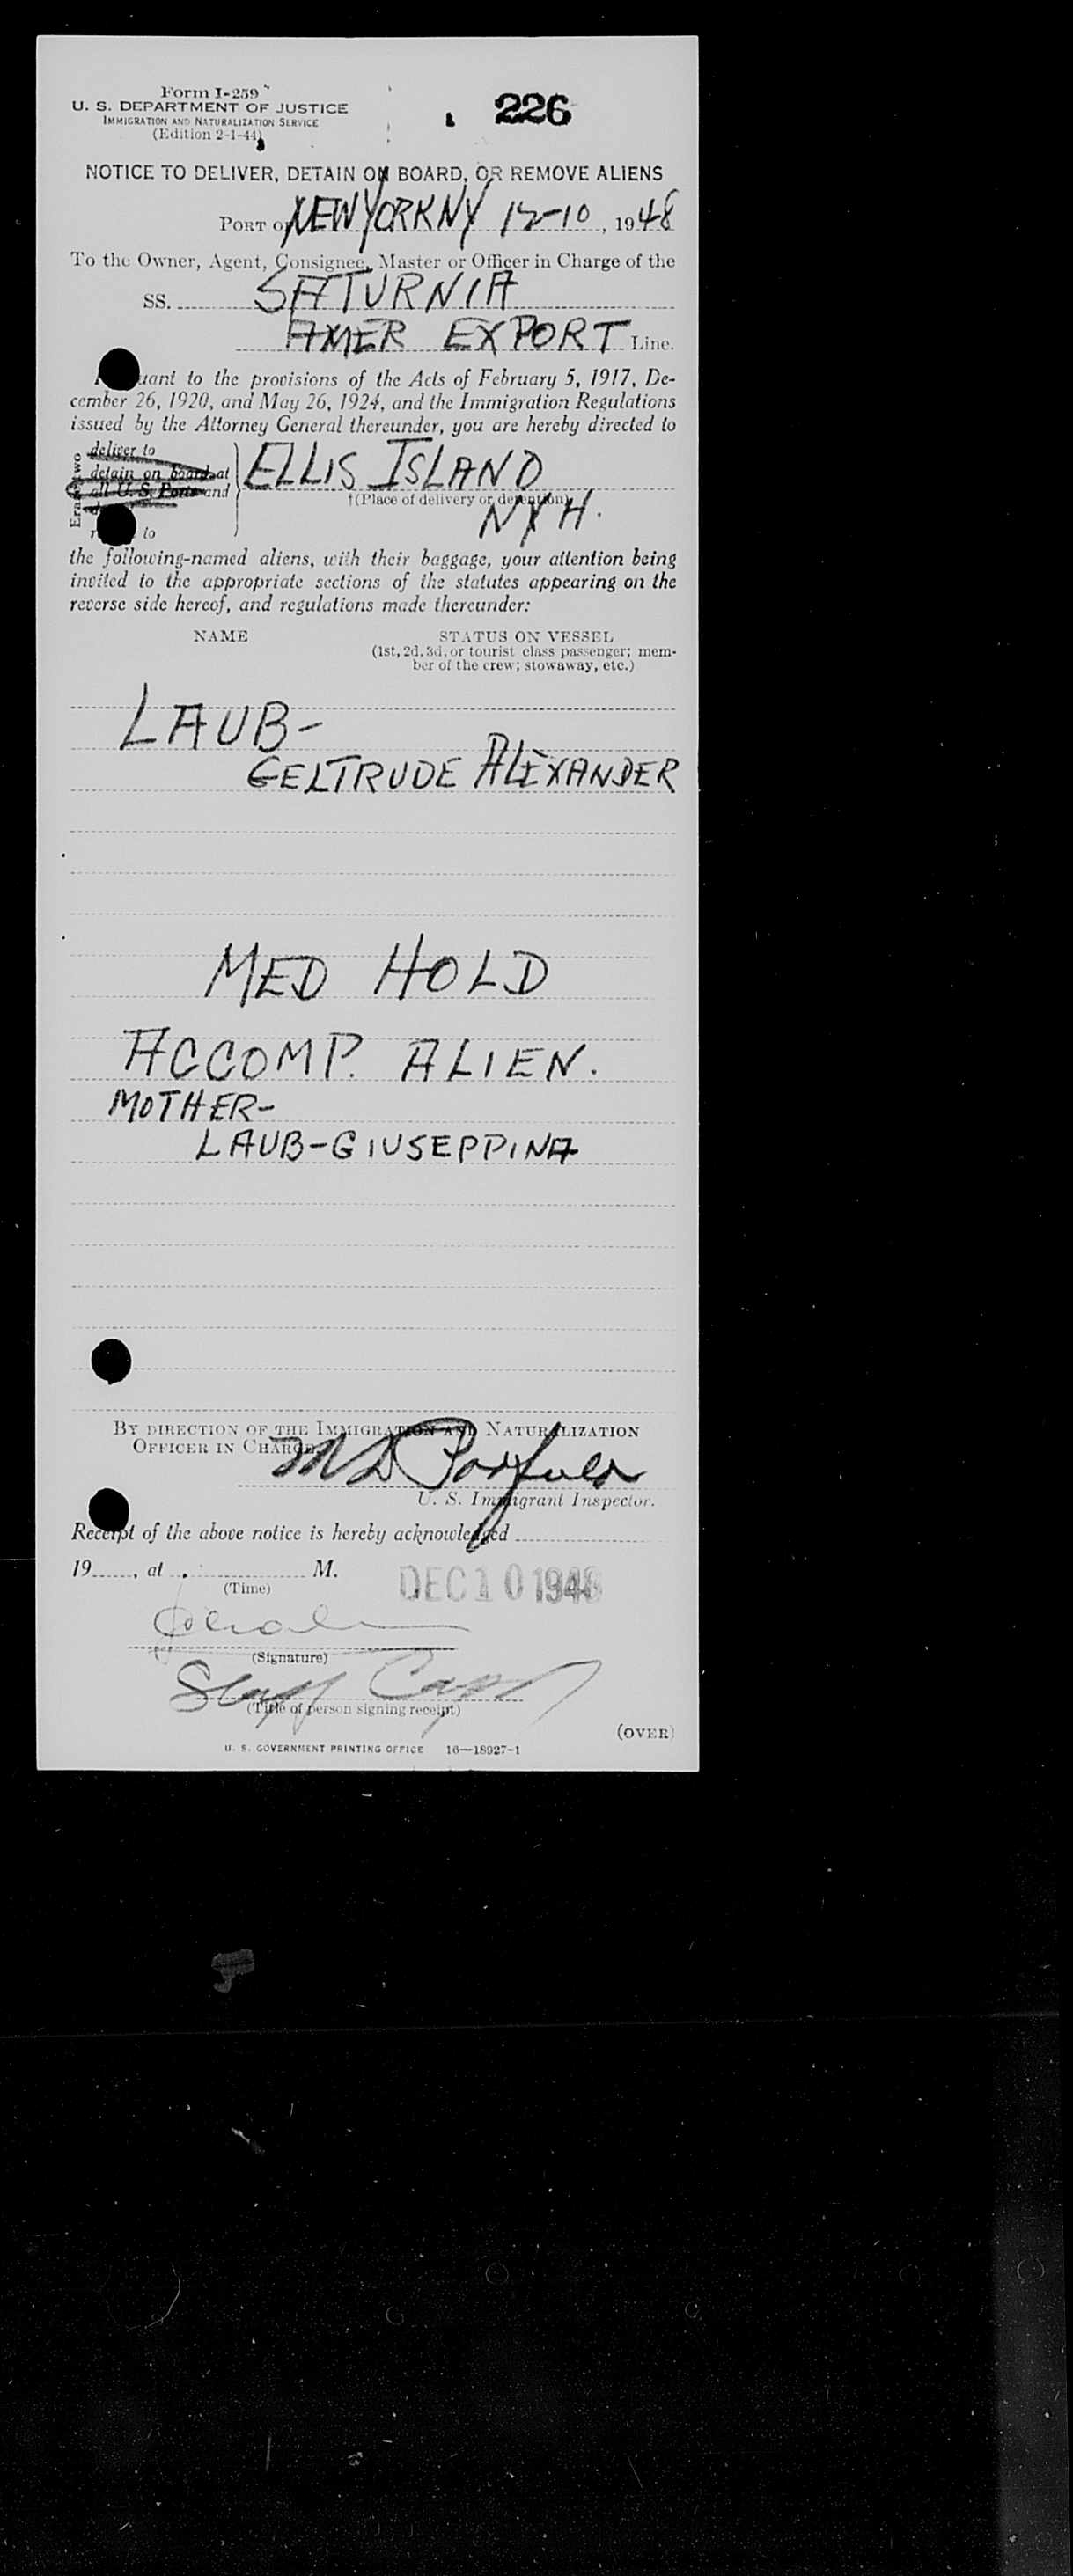 Form I-259
U. S. DEPARTMENT OF JUSTICE
IMMIGRATION AND NATURALIZATION SERVICE
(Edition 2-1-44)
226
NOTICE TO DELIVER, DETAIN ON BOARD, OR REMOVE ALIENS
PORT OF NEW YORK NY 12-10, 1948
To the Owner, Agent, Consignee, Master or Officer in Charge of the
SS. SATURNIA
AMER EXPORT Line.
uant to the provisions of the Acts of February 5, 1917, De-
cember 26, 1920, and May 26, 1924, and the Immigration Regulations
issued by the Attorney General thereunder, you are hereby directed to
deliver to
detain on board at
all U. S. Ports and
to
ELLIS ISLAND
†(Place of delivery or detention)
NYH.
the following-named aliens, with their baggage, your attention being
invited to the appropriate sections of the statutes appearing on the
reverse side hereof, and regulations made thereunder:
NAME STATUS ON VESSEL
(1st, 2d, 3d, or tourist class passenger; mem-
ber of the crew; stowaway, etc.)
LAUB-
GELTRUDE ALEXANDER
MED HOLD
ACCOMP. ALIEN.
MOTHER-
LAUB-GIUSEPPINA
BY DIRECTION OF THE IMMIGRATION AND NATURALIZATION
OFFICER IN CHARGE
U. S. Immigrant Inspector.
Receipt of the above notice is hereby acknowledged
19, at M.
(Time)
DEC 10 1948
(Signature)
Staff Capt
(Title of person signing receipt)
(OVER)
U. S. GOVERNMENT PRINTING OFFICE 16—18927-1